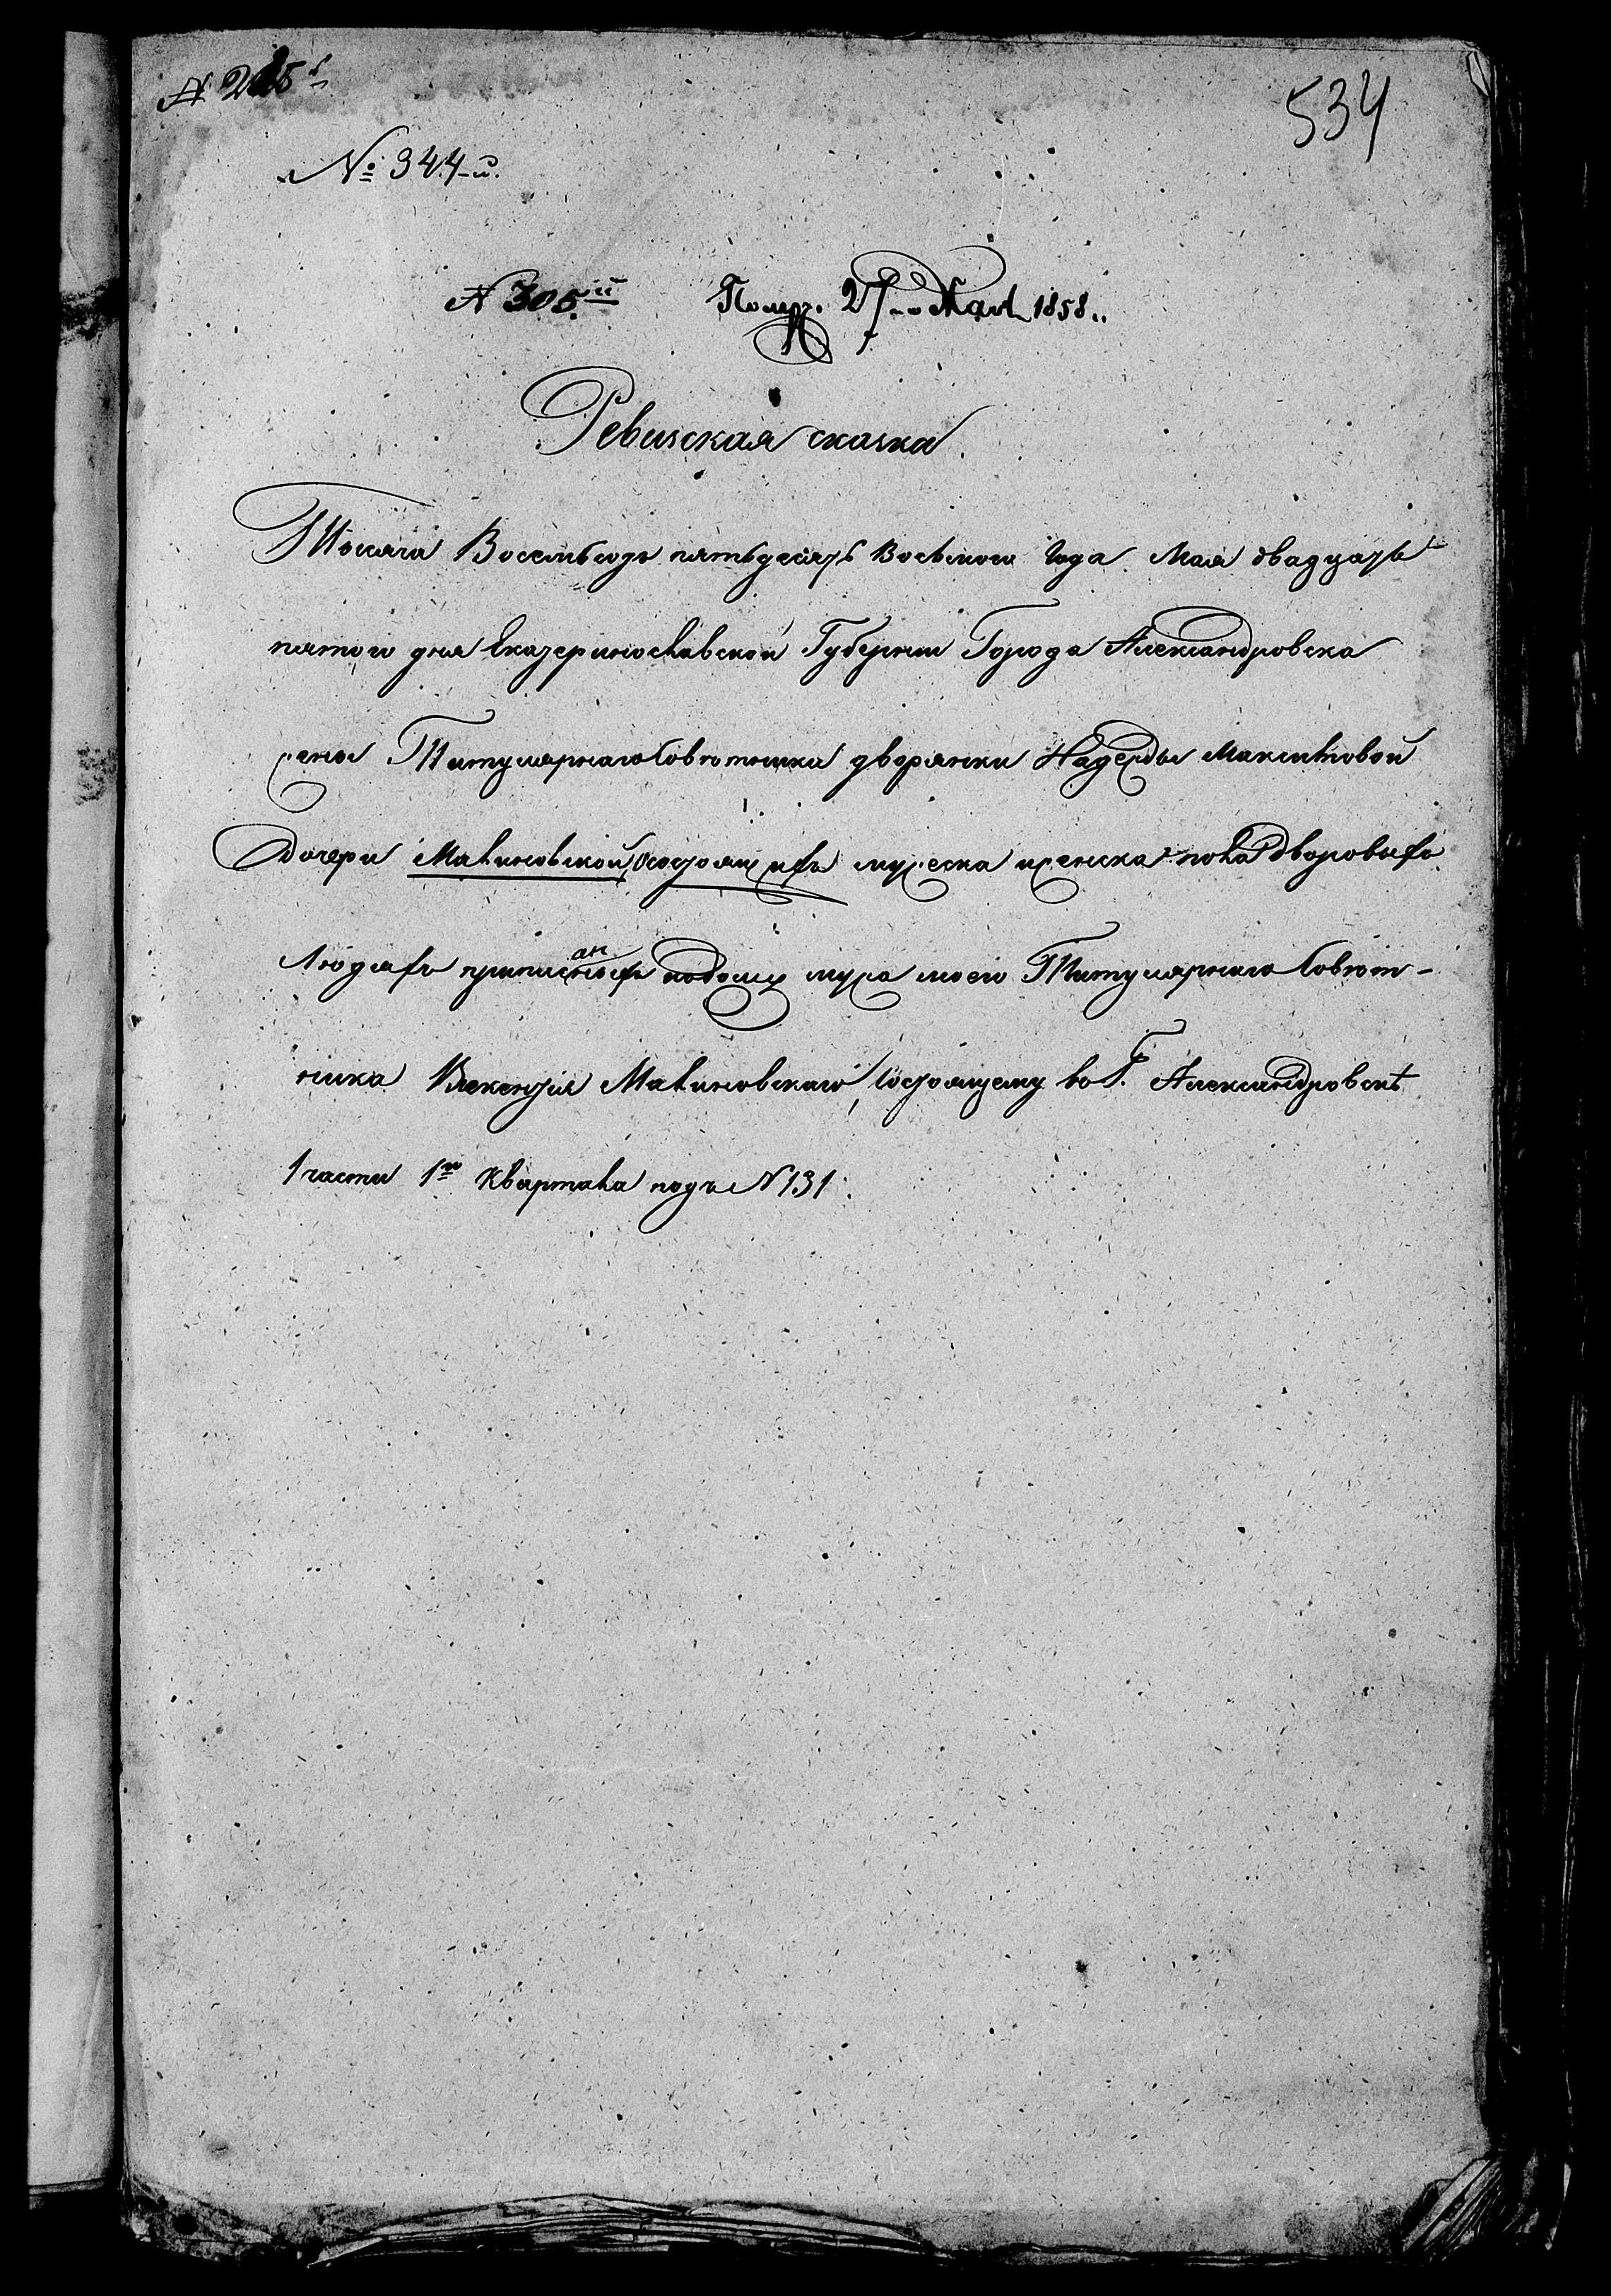 534
№ 344-й.
№ 305-й Получ. 27-го Мая 1858..
Ревизская сказка.
Тысяча Восемьсодъ пятьдесятъ Восьмого Года Мая двадцать
пятого дня Екатеринославской Губерніи Города Александровска
жены Титулярнаго Совѣтника дворянки Надежды Максимовой
Дочери Малиновской, о состоящихъ мужеска и женска пола дворовыхъ
Людяхъ приписанныхъ къ дому мужа моего Титулярнаго Совѣт-
ника Малиновскаго, Состоящему во Г. Александровскѣ
1 части 1го Квартала подъ № 131.